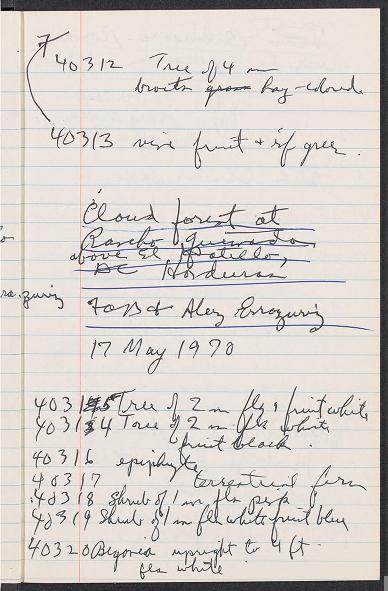 40312 Tree of 4 m
bracts grass hay-colored
40313 vine fruit + sf green.
Cloud forest at
Rancho Quemado,
above El Potillo,
Honduras
& Alez Errazuriz
17 May 1970
40315 Tree of 2 m fls & fruit white
40314 Tree of 2 m fls white
fruit black.
40316 epiphyte
40317 terrestrial fern
40318 Shrub of 1 m fls purp
40319 Shrub of 1 m fls white fruit blue
40320 Begonia upright to 4 ft
fls white
razuriz